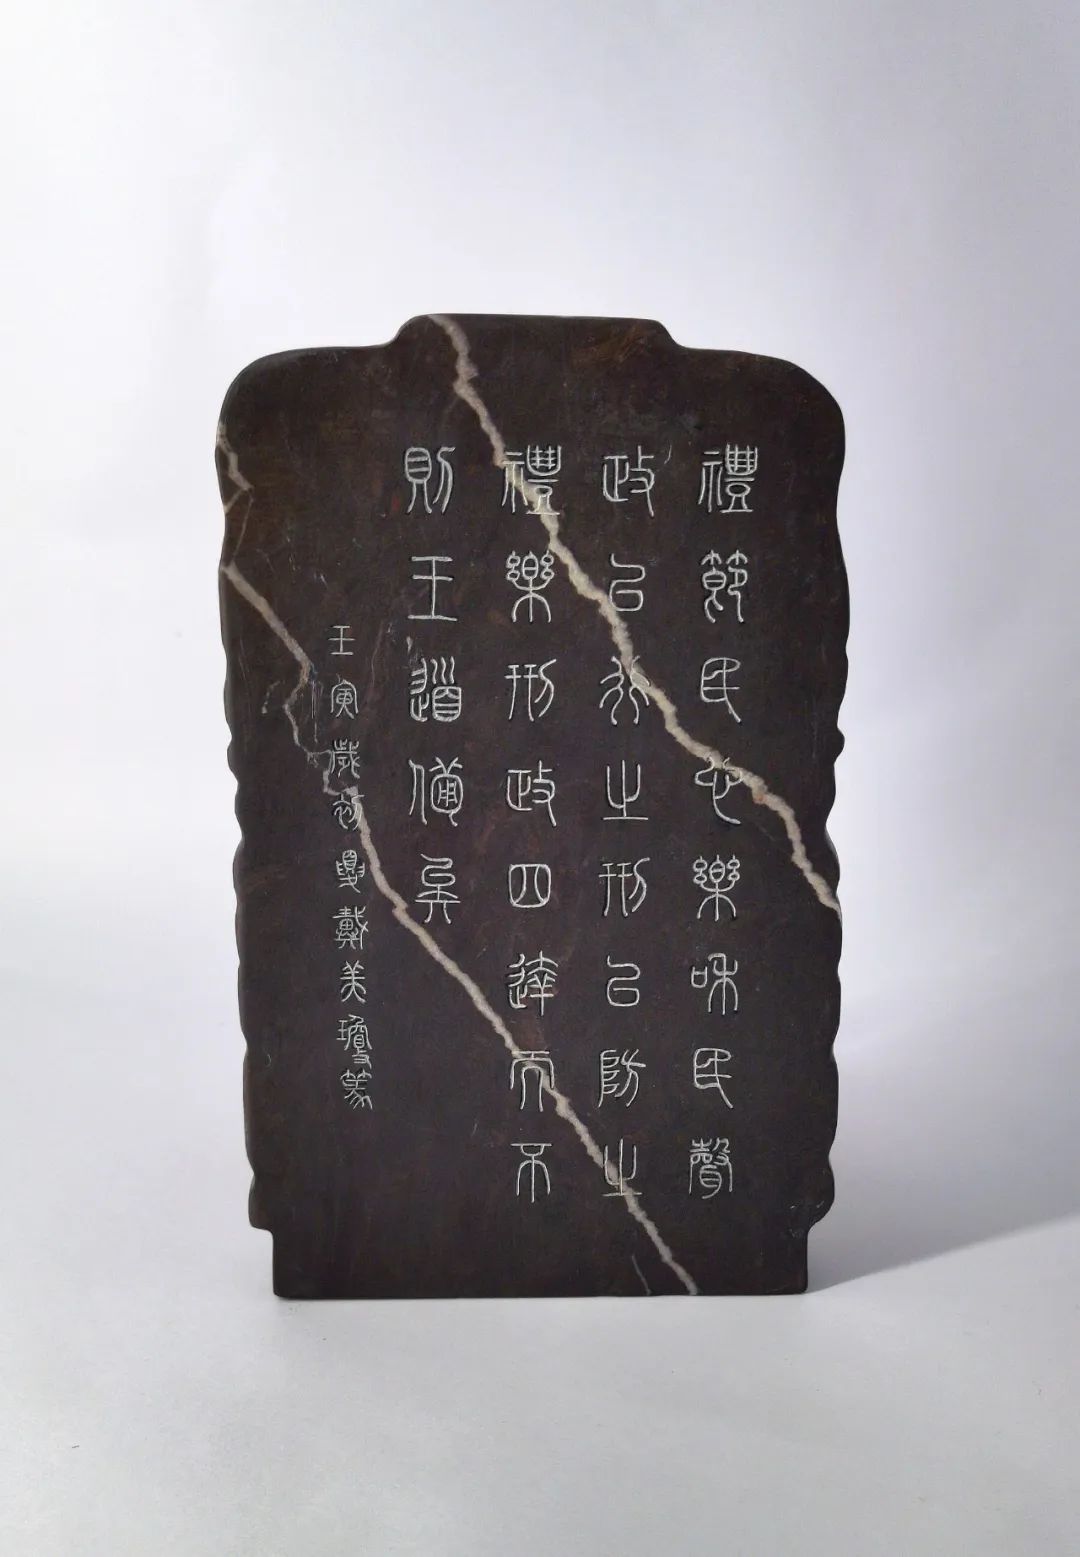 禮節民心樂和民聲
政㠯行之刑㠯防之
禮樂刑政四達而不
則王道備矣
壬寅歲初夏戴美瓊篆